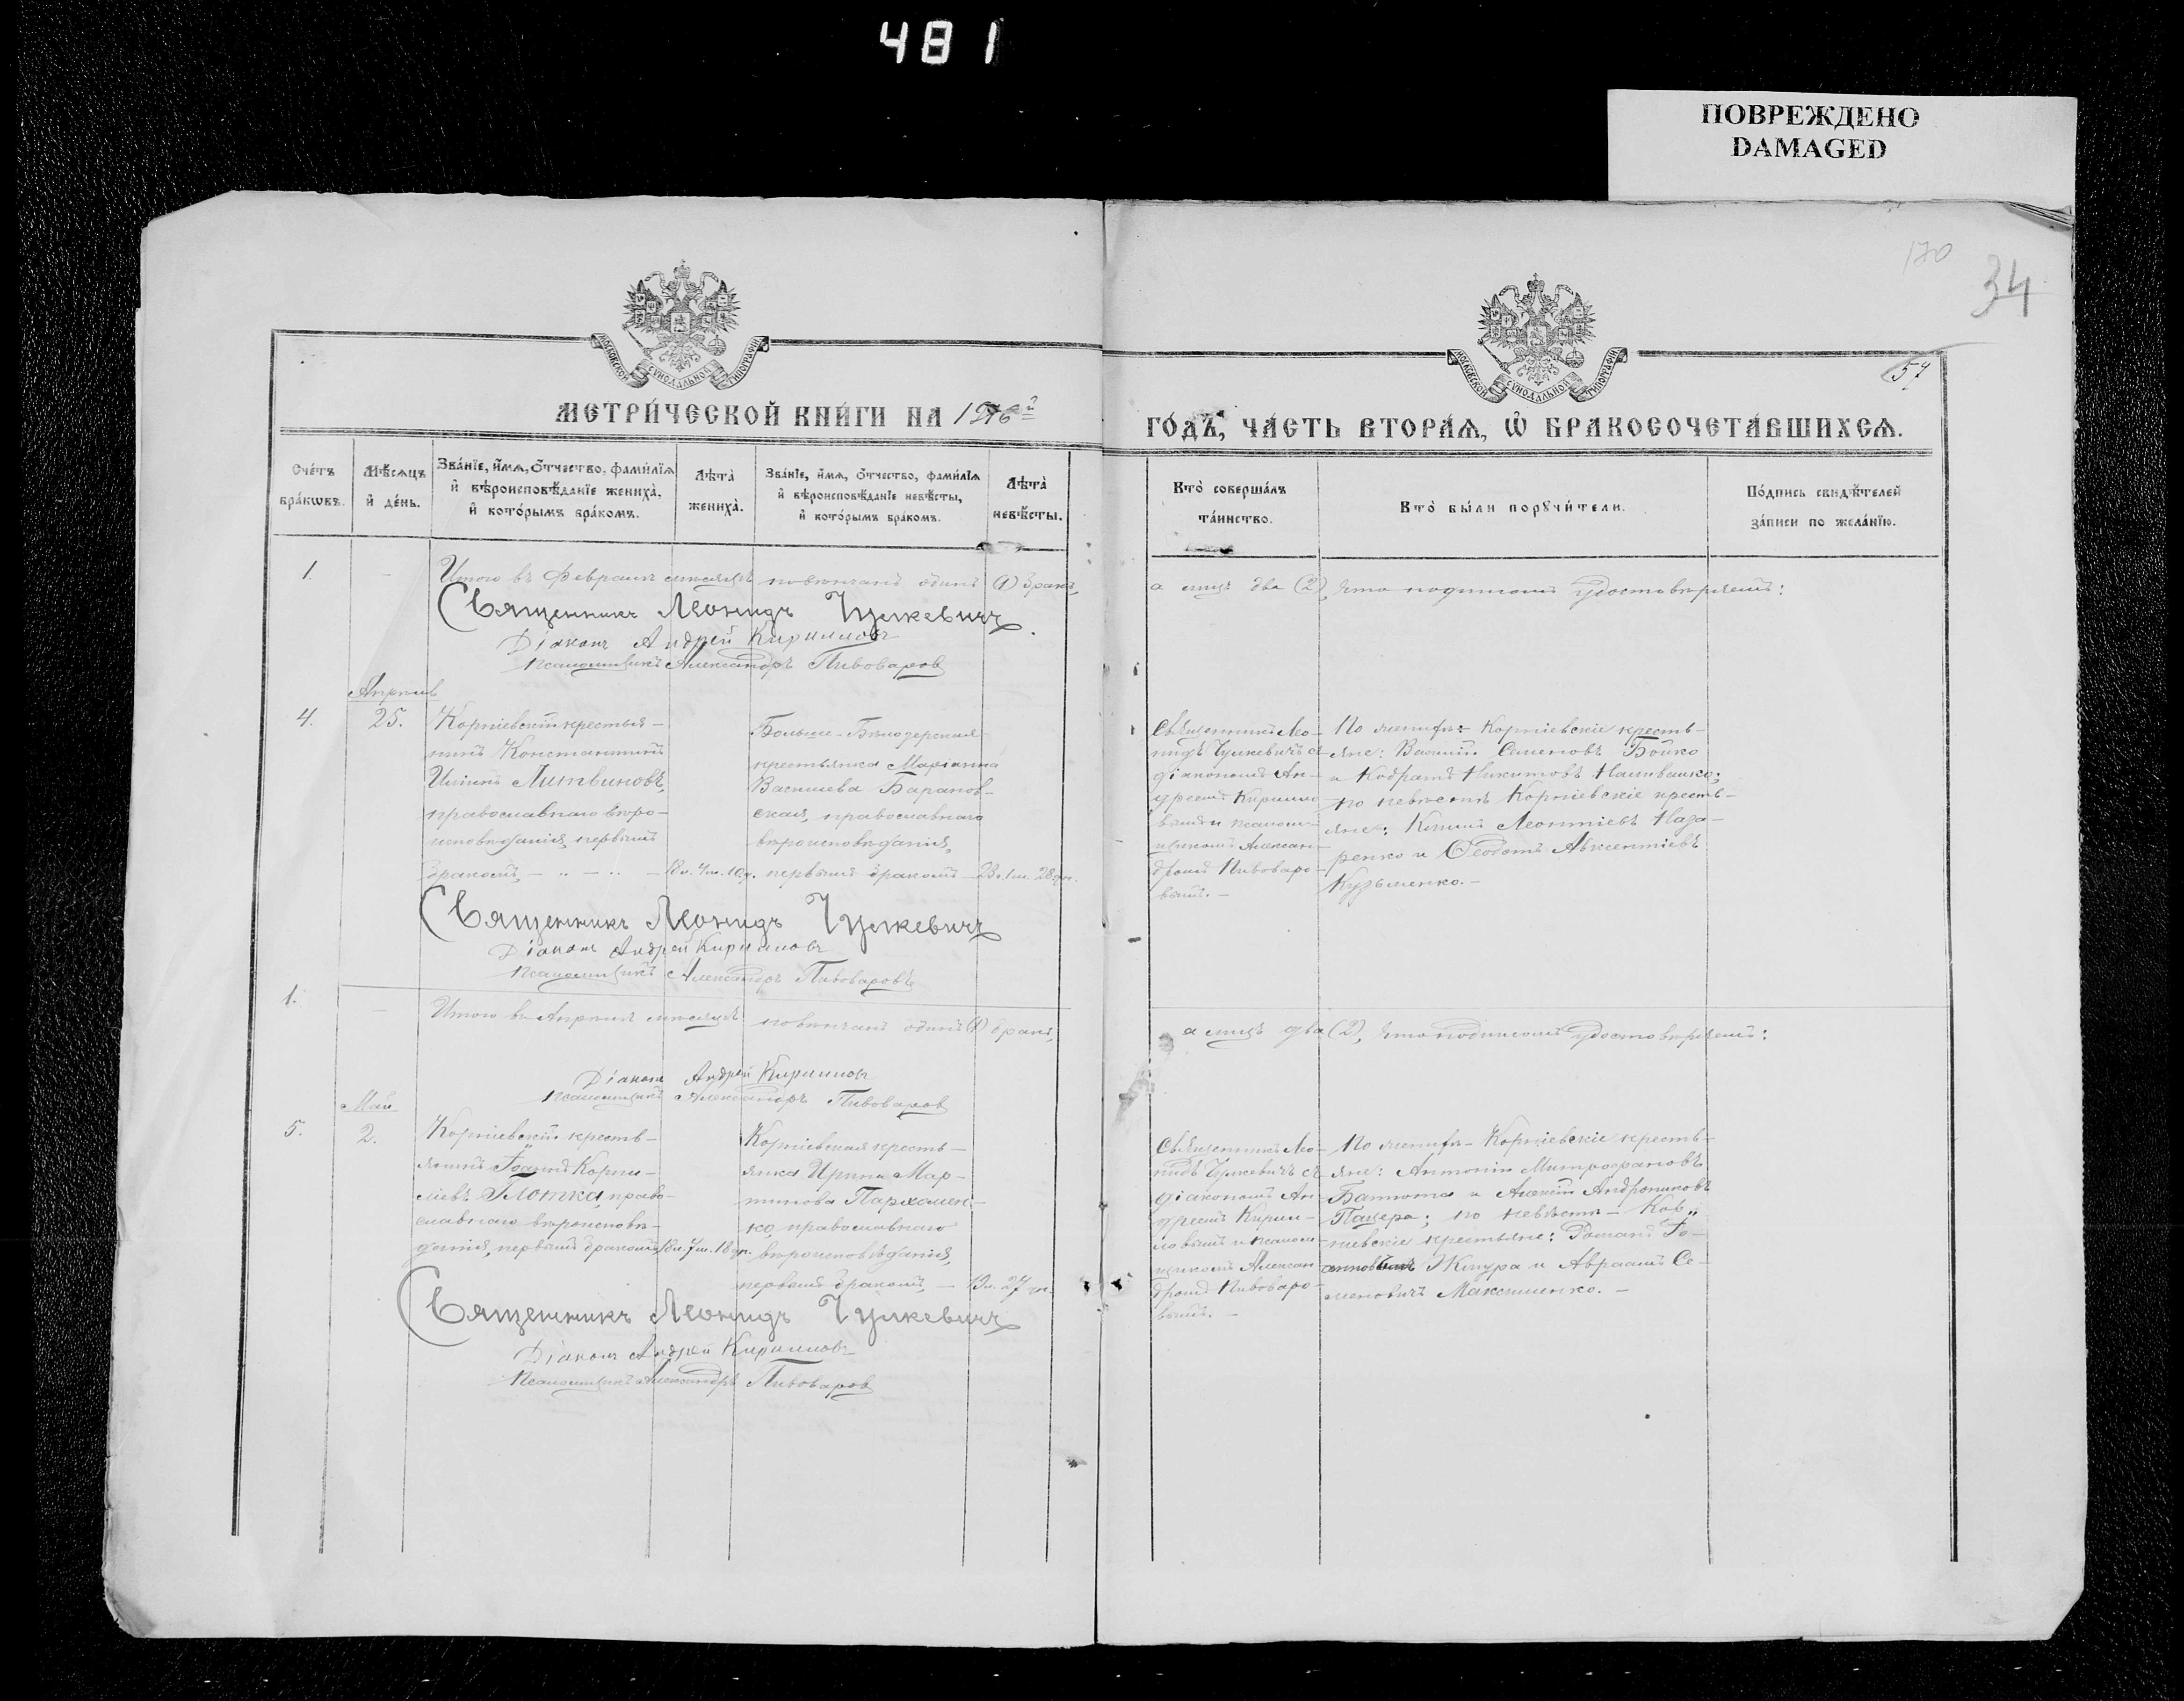 481
ПОВРЕЖДЕНО
DAMAGED
170
34
57
МОСКОВСКОЙ СѴНОДАЛЬНОЙ ТИПОГРАФІИ
МОСКОВСКОЙ СѴНОДАЛЬНОЙ ТИПОГРАФІИ
МЕТРИ́ЧЕСКОЙ КНИ́ГИ НА 1916й
ГО́ДЪ, ЧА́СТЬ ВТОРА́Ѧ, Ѡ҆ БРАКОСОЧЕТА́ВШИХСѦ.
Сче́тъ
бра́кѡвъ.
Мѣ́сѧцъ
и҆ де́нь.
Зва́нїе, и҆́мѧ, ѻ҆́тчество, фами́лїѧ
и҆ вѣроисповѣ́данїе жениха̀,
и҆ кото́рымъ бра́комъ.
Лѣ́та̀
жениха̀.
Зва́нїе, и҆́мѧ, ѻ҆́тчество, фами́лїѧ
и҆ вѣроисповѣ́данїе невѣ́сты,
и҆ кото́рымъ бра́комъ.
Лѣ́та̀
невѣ́сты.
Кто̀ соверша́лъ
та́инство.
Кто̀ бы́ли порꙋчи́тели.
По́дпись свидѣ́телей
за́писи по жела́нїю.
1. – Итого въ Февралѣ мѣсяцѣ повѣнчанъ одинъ (1) бракъ,
а лицъ два (2), что подписомъ удостовѣряемъ:
Священникъ Леонидъ Чулкевичъ
Діаконъ Андрей Кирилловъ
Псаломщикъ Александръ Пивоваров
Апрѣль
4. 25.
Корніевскій крестья-
нинъ Константинъ
Иліинъ Литвиновъ,
православнаго вѣро-
исповѣданія, первымъ
бракомъ, – .. – .. –
18 л. 4 м. 10 д.
Больше-Бѣлозерская
крестьянка Маріанна
Васильева Баранов-
ская, православнаго
вѣроисповѣданія,
первымъ бракомъ –
23 л. 1 м. 28 дн.
Священникъ Лео-
нидъ Чулкевичъ съ
діакономъ Ан-
дреемъ Кирилло-
вымъ и псалом-
щикомъ Алексан-
дромъ Пивоваро-
вымъ. –
По женихѣ – Корніевскіе кресть-
яне: Василій Семеновъ Бойко
и Кодратъ Никитовъ Наливайко;
по невѣстѣ Корніевскіе кресть-
яне: Леонтіевъ Наза-
ренко и Ѳеодотъ Авксентіевъ
Кузьменко. –
Священникъ Леонидъ Чулкевичъ
Діаконъ Андрей Кирилловъ
Псаломщикъ Александръ Пивоваровъ
1. – Итого въ Апрѣлѣ мѣсяцѣ повѣнчанъ одинъ (1) бракъ,
а лицъ два (2), что подписомъ удостовѣряемъ:
Діаконъ Андрей Кирилловъ
Псаломщикъ Александръ Пивоваров
Май
5. 2.
Корніевскій кресть-
янинъ Іоаннъ Корни-
ліевъ Глотка, право-
славнаго вѣроисповѣ-
данія, первымъ бракомъ
18 л. 7 м. 18 дн.
Корніевская кресть-
янка Ирина Мар-
тинова Пархомен-
ко, православнаго
вѣроисповѣданія,
первымъ бракомъ, –
Священникъ Лео-
нидъ Чулкевичъ съ
діакономъ Ан-
дреемъ Кирил-
ловымъ и псалом-
щикомъ Алексан-
дромъ Пивоваро-
вымъ. –
По женихѣ – Корніевскіе кресть-
яне: Антоній Митрофановъ
и Алексій Андрониковъ
Пацера; по невѣстѣ – Кор„
ніевскіе крестьяне: Романъ Іо-
анновъ и Авраамъ Се-
меновичъ Максименко. –
Священникъ Леонидъ Чулкевичъ
Діаконъ Андрей Кирилловъ
Псаломщикъ Александръ Пивоваров